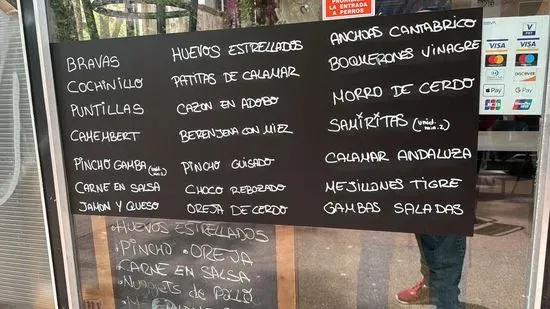 PROHIBIDA
LA ENTRADA
A PERROS
BRAVAS
COCHINILLO
PUNTILLAS
CAMEMBERT
PINCHO GAMBA
CARNE EN SALSA
JAMON Y QUESO
HUEVOS ESTRELLADOS
PATITAS DE CALAMAR
CAZON EN ADOBO
BERENJENA CON MIEL
PINCHO GUISADO
CHOCO REBOZADO
OREJA DE CERDO
ANCHOAS CANTABRICO
BOQUERONES VINAGRE
MORRO DE CERDO
SAMIRITAS (unid. min. 2)
CALAMAR ANDALUZA
MEJILLONES TIGRE
GAMBAS SALADAS
HUEVOS ESTRELLADOS
PINCHO OREJA
CARNE EN SALSA
NUGGETS DE POLLO
VISA VISA
DISCOVER
Pay G Pay
JCB